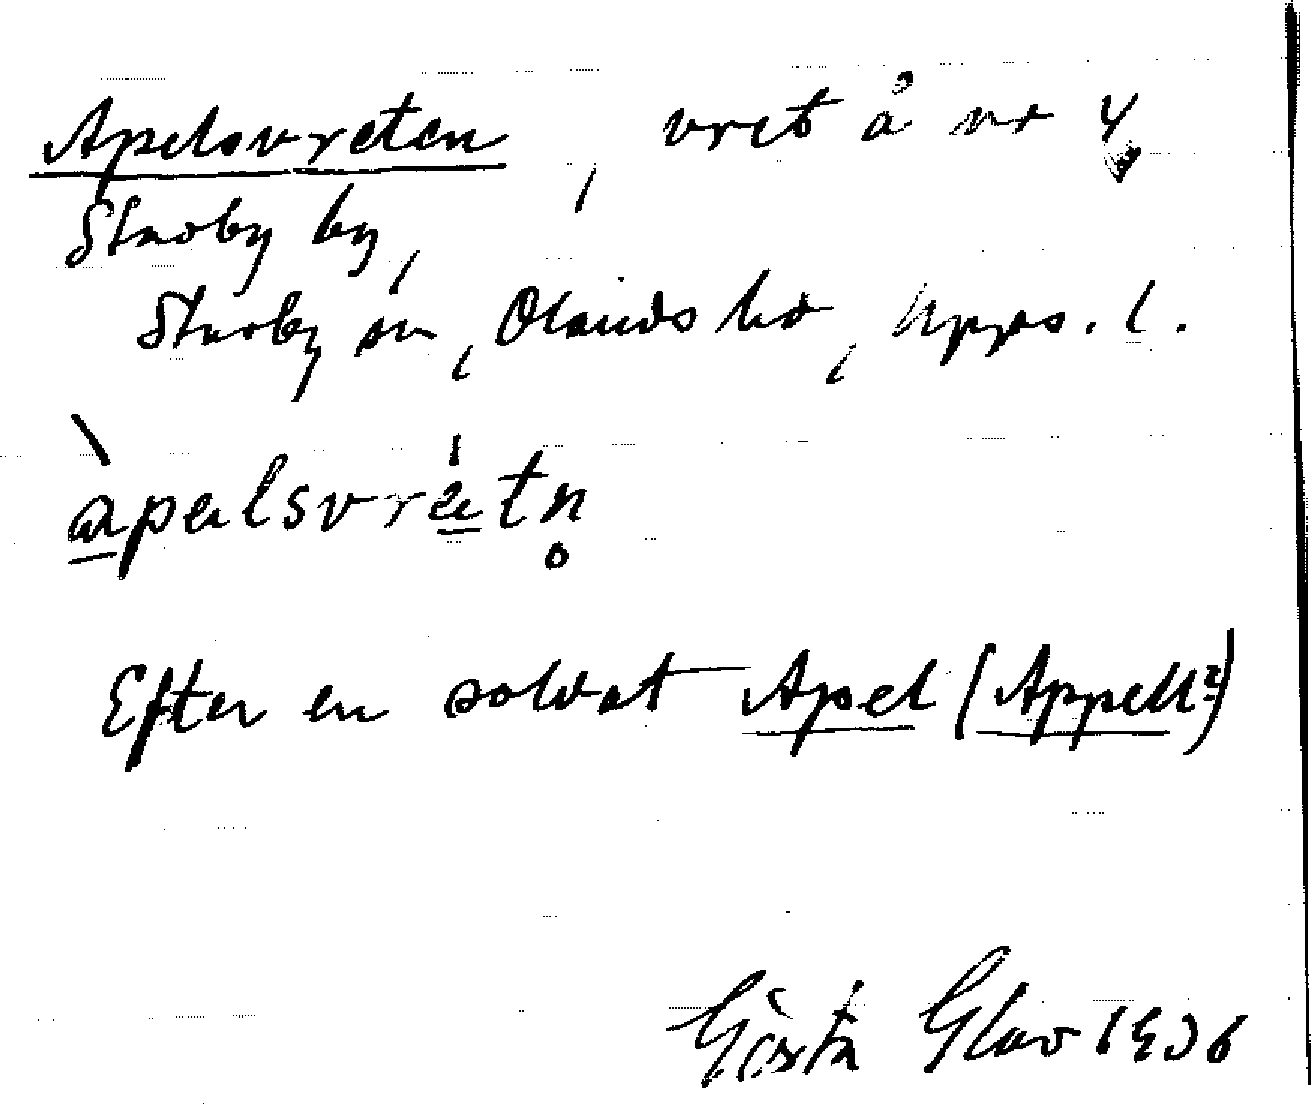 Apelsvreten, vret å nr 4,
Stavby by,
Stavby sn, Olands hd, Upps. l.
àpəlsvrétn̥
Efter en soldat Apel (Appell?)
Gösta Glav 1936